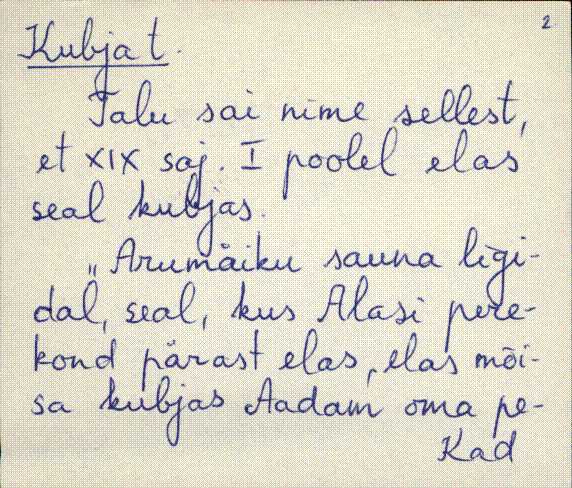 2
Kubja t.
Talu sai nime sellest,
et XIX saj. I poolel elas
seal kubjas.
„Arumäiku sauna ligi-
dal, seal, kus Alasi pere-
kond pärast elas, elas mõi-
sa kubjas Aadam oma pe-
Kad